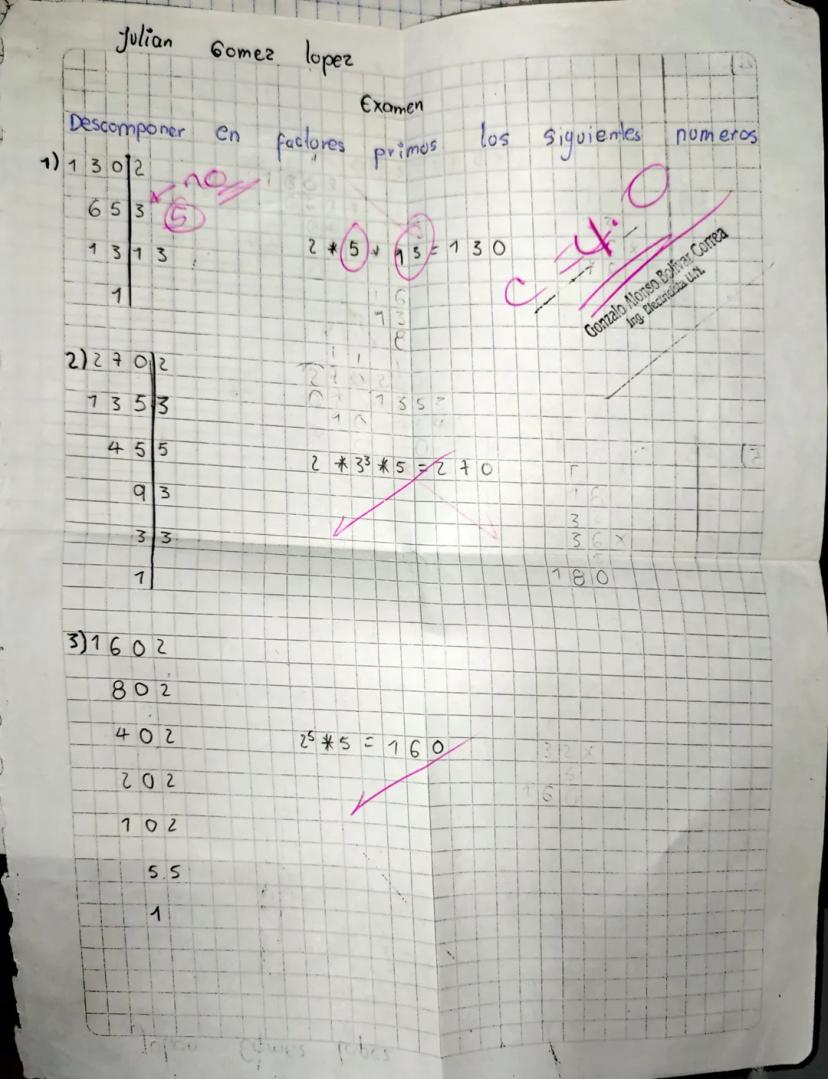 Julian Gomez lopez
Examen
Descomponer en factores primos los siguientes numeros
1) 130|2
no
65|3 5
13|13
2 * 5 * 13 = 130
1
C = 4.0
Gonzalo Alonso Bolívar Correa
Ing. Electricista U.N.
2) 270|2
135|3
45|5
2 * 3³ * 5 = 270
9|3
3|3
1
180
3) 160 2
80 2
40 2
2⁵ * 5 = 160
20 2
10 2
5 5
1